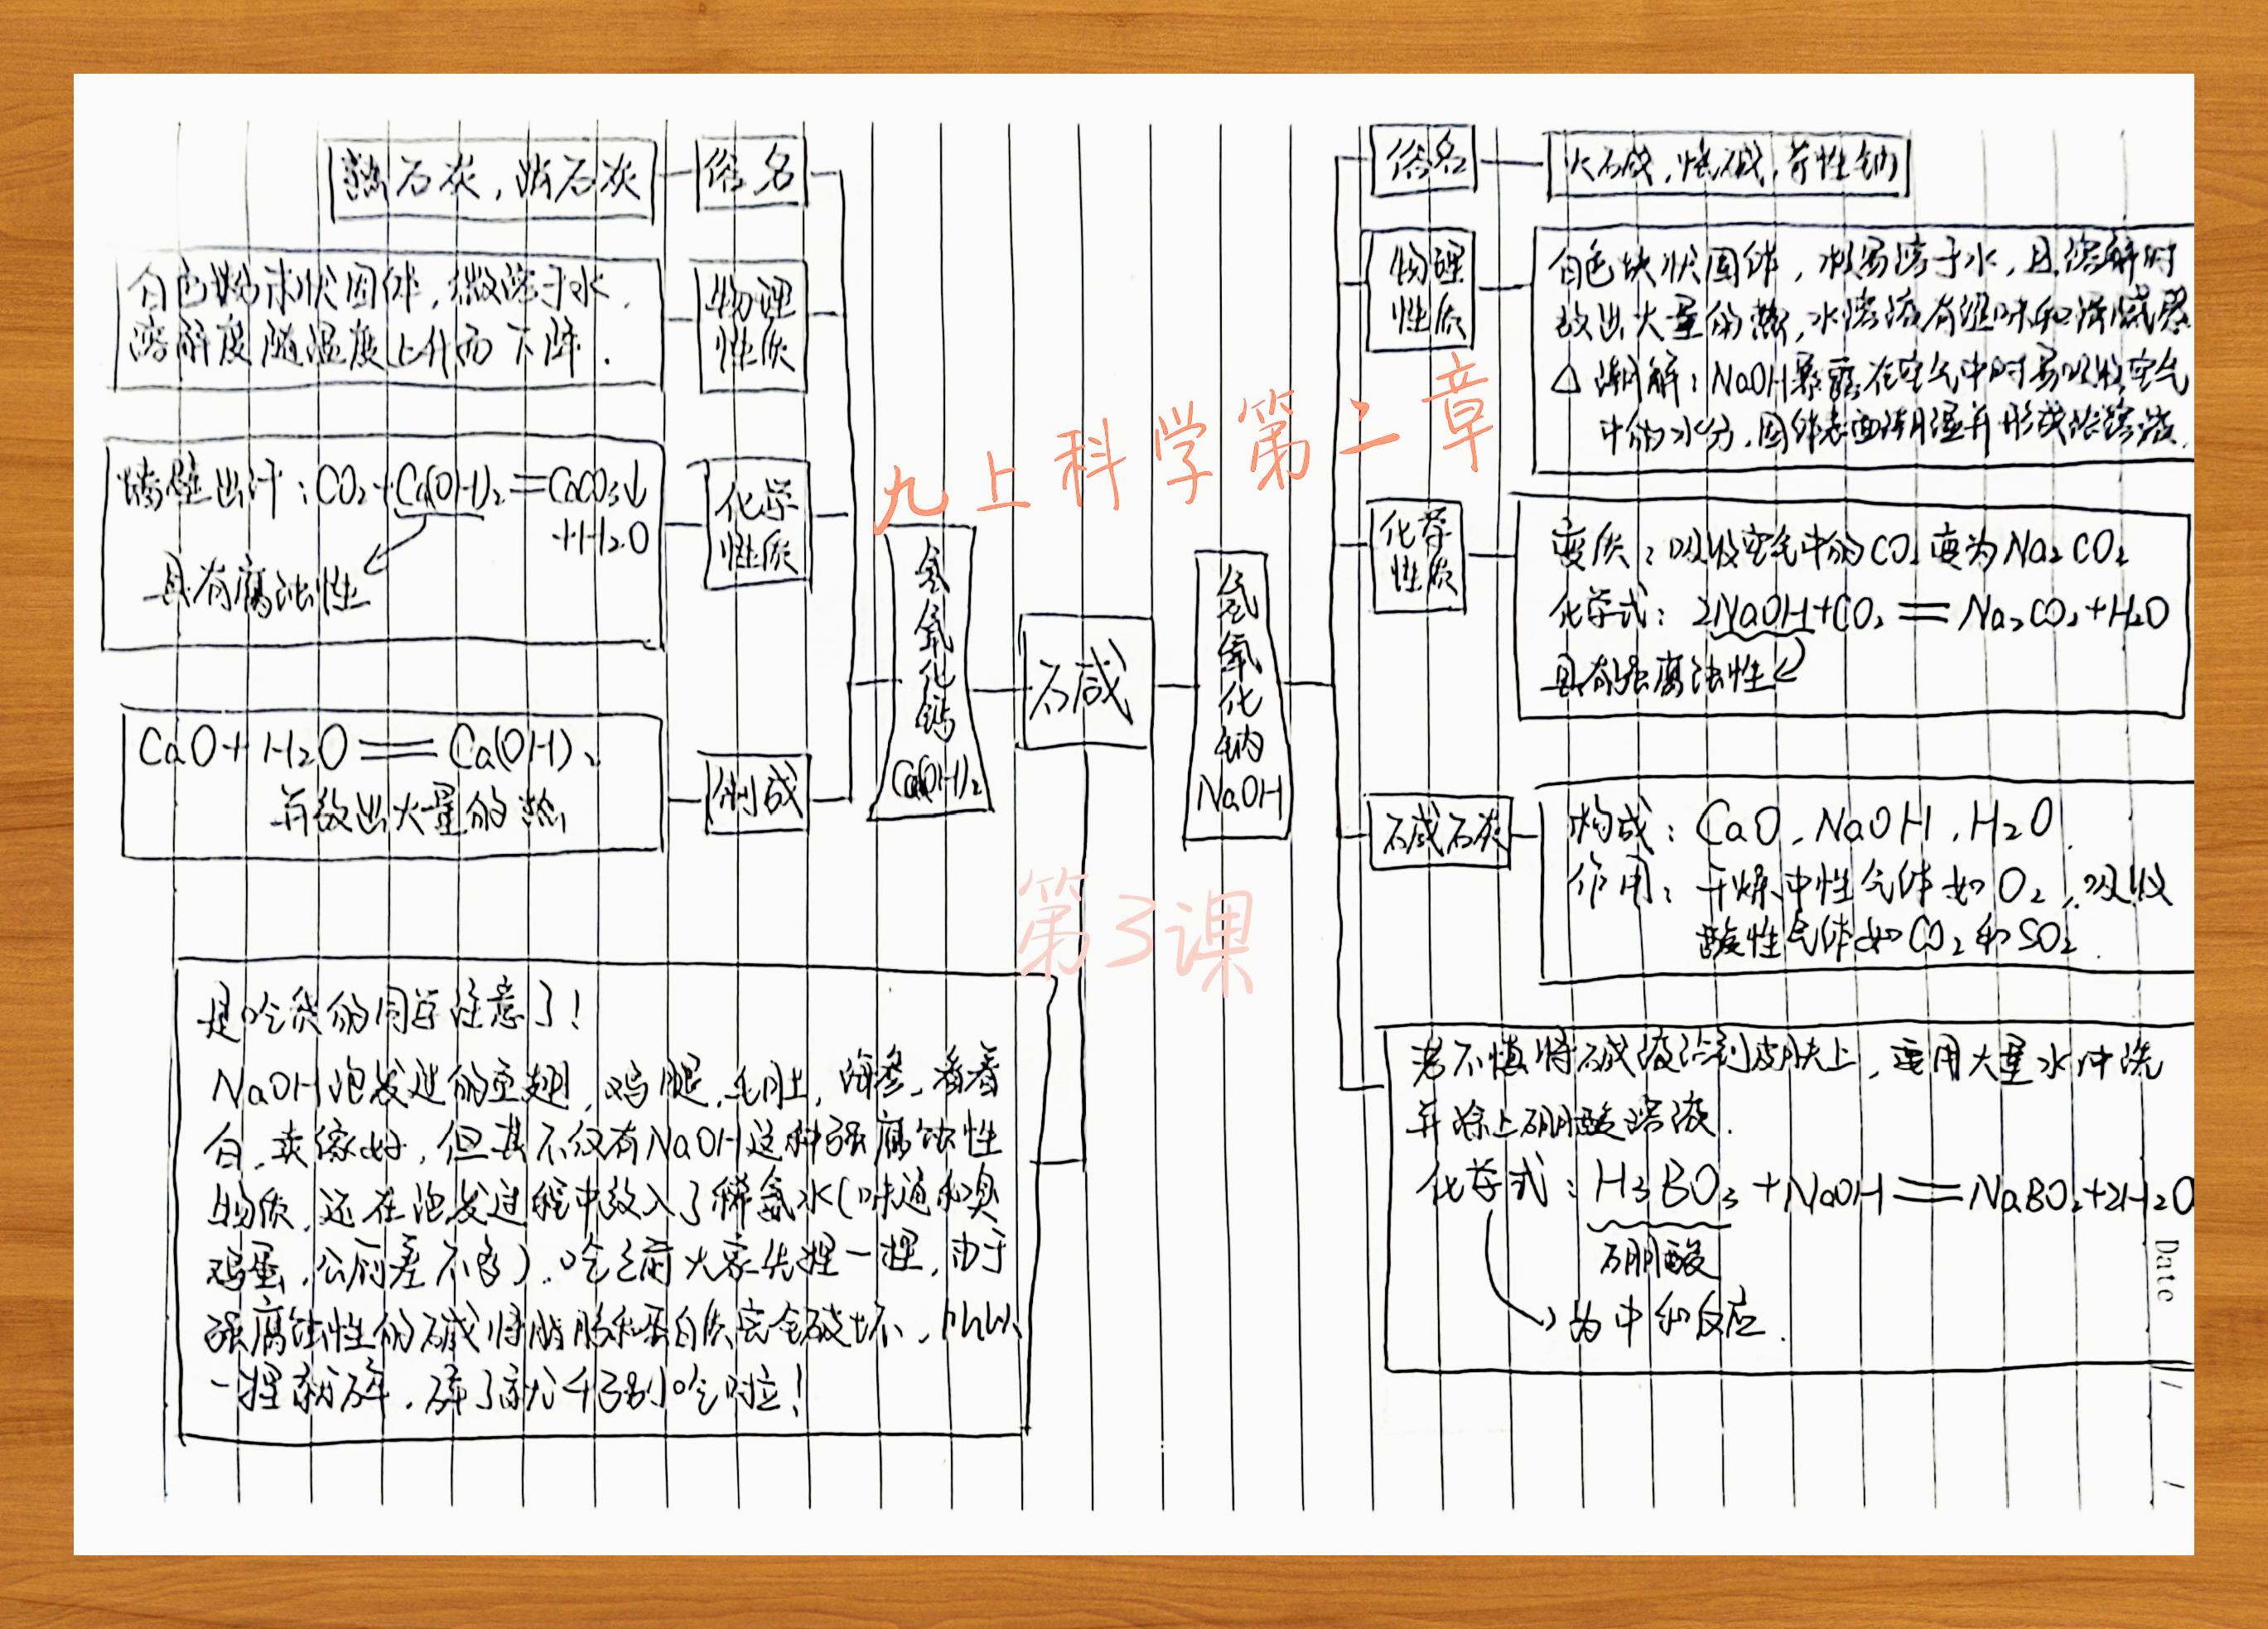 熟石灰，消石灰
俗名
白色粉末状固体，微溶于水，
溶解度随温度上升而下降．
物理
性质
墙壁出汗：CO₂+Ca(OH)₂=CaCO₃↓
+H₂O
具有腐蚀性
化学
性质
CaO+H₂O=Ca(OH)₂
并放出大量的热
制成
氢氧化钙
Ca(OH)₂
碱
氢氧化钠
NaOH
九上科学第二章
第3课
是吃货的同学注意了！
NaOH泡发过的亚翅，鸡腿，毛肚，海参，看着
白，卖像好，但其不仅有NaOH这种强腐蚀性
物质，还在泡发过程中放入了稀氨水(味道和臭
鸡蛋，公厕差不多)．吃之前大家先捏一捏，由于
强腐蚀性的碱将脂肪和蛋白质完全破坏，所以
一捏就碎．碎了就千万别吃啦！
俗名
火碱，烧碱，苛性钠
物理
性质
白色块状固体，极易溶于水，且溶解时
放出大量的热，水溶液有涩味和滑腻感
△ 潮解：NaOH暴露在空气中时易吸收空气
中的水分，固体表面潮湿并形成浓溶液．
化学
性质
变质：吸收空气中的CO₂变为Na₂CO₂
化学式：2NaOH+CO₂=Na₂CO₂+H₂O
具有强腐蚀性
碱石灰
构成：CaO、NaOH、H₂O
作用：干燥中性气体如O₂，吸收
酸性气体如CO₂和SO₂．
若不慎将碱液沾到皮肤上，要用大量水冲洗
并涂上硼酸溶液．
化学式：H₃BO₃+NaOH=NaBO₂+2H₂O
硼酸
为中和反应．
Date